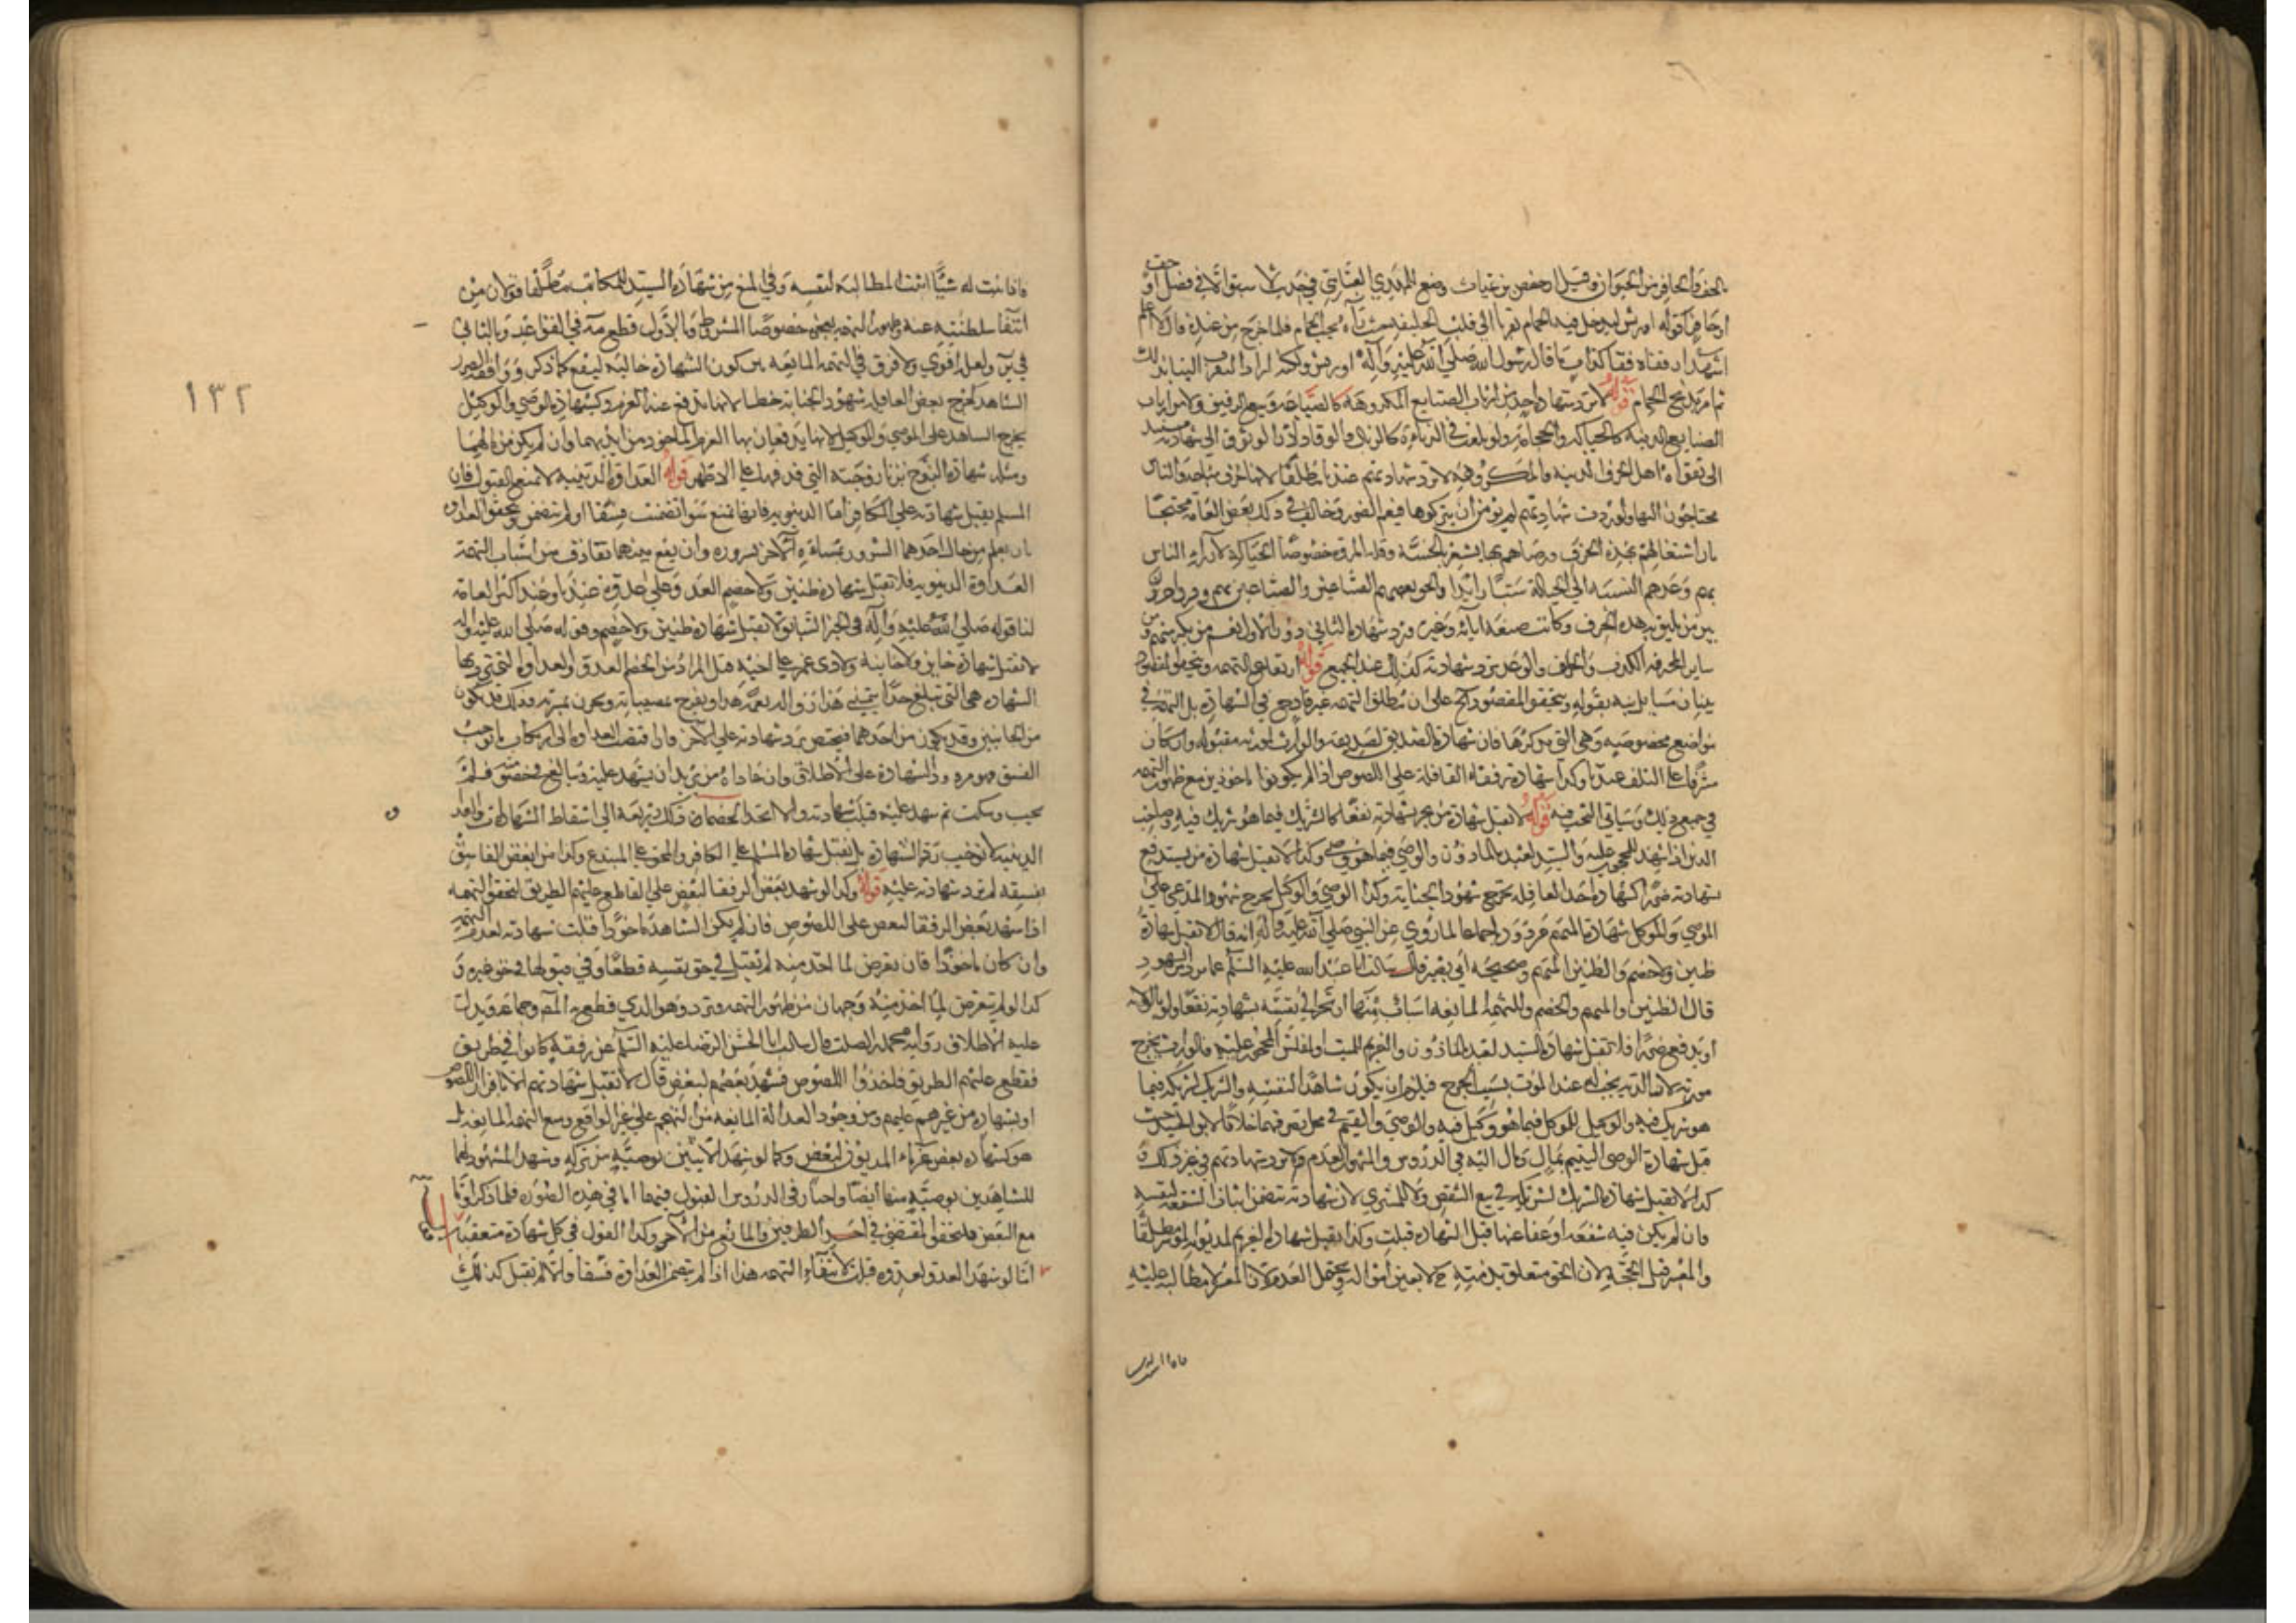 الخف والحافر من الحيوان وقيل ان حفص بن غياث وضع للمهدي العباسي في حديث لا سبق الا في فضل او خف
او حافر قوله او ريش ليدخل فيه الحمام تقربا الى قلب الخليفة حيث رآه يحب الحمام فلما خرج من عنده قال
اشهد ان قفاه قفا كذاب ما قال رسول الله صلى الله عليه وآله او ريش ولكنه اراد التقرب الينا بذلك
ثم امر بذبح الحمام قوله لا ترد شهادة احد من ارباب الصنايع المكروهة كالصياغة وبيع الرقيق ولا من ارباب
الصنايع الدنية كالحياكة والحجامة ولو بلغت في الدناءة كالزبال والوقاد لان الوثوق الى شهادته مستند
الى تقواه اهل الحرف الدنية والمكروهة لا ترد شهادتهم عندنا مطلقا لانها حرف مباحة والناس
محتاجون اليها ولو ردت شهادتهم لم يؤمن ان يتركوها فيعم الضرر وخالف في ذلك بعض العامة محتجا
بان اشتغالهم بهذه الحرف ورضاهم بها يشعر بالخسة وقلة المروة خصوصا الحياكة لازراء الناس
بهم وعدهم النسبة الى الحياكة سبا وايذا والحق بعضهم
بين من يليق به هذه الحرف وكانت صنعة آبائه وغيره فرد شهادة الثاني دون الاول نعم من يكثر منهم
ساير المحترفة الكذب والخلف والوعد ترد شهادته كذلك عند الجميع قوله ارتفاع التهمة ويتحقق المقصود
ببيان مسايل نبه بقوله ويتحقق المقصود الخ على ان مطلق التهمة غير قادح في الشهادة بل التهمة في
مواضع مخصوصة وهي التي يذكرها فان شهادة الصديق لصديقه والوارث لمورثه مقبولة وان كان
مشرفا على التلف عندنا وكذا شهادة رفقاء القافلة على اللصوص اذا لم يكونوا ماخوذين مع ظهور التهمة
في جميع ذلك وسياتي البحث فيه قوله لا تقبل شهادة من يجر بشهادته نفعا كالشريك فيما هو شريك فيه وصاحب
الدين اذا شهد للمحجور عليه والسيد لعبده الماذون والوصي فيما هو وصي وكذا لا تقبل شهادة من يستدفع
بشهادته ضررا كشهادة احد العاقلة بجرح شهود الجناية وكذا الوصي والوكيل بجرح شهود المدعي على
الموصي والموكل شهادة المتهم مردودة اجماعا لما روي عن النبي صلى الله عليه وآله انه قال لا تقبل شهادة
ظنين ولا خصم والظنين المتهم وصحيحة ابي بصير قال سالت ابا عبد الله عليه السلام عما يرد من الشهود
قال الظنين والمتهم والخصم وللتهمة المانعة اسباب منها ان يجر الى نفسه بشهادته نفعا ولو بالولاية
او يدفع ضررا فلا تقبل شهادة السيد لعبده الماذون والغريم للميت او المفلس المحجور عليه والوارث بجرح
مورثه لان الدية يجب له عند الموت بسبب الجرح فيلزم ان يكون شاهدا لنفسه والشريك لشريكه فيما
هو شريك فيه والوكيل للموكل فيما هو وكيل فيه والوصي والقيم في محل تصرفهما خلافا لابن الجنيد حيث
قبل شهادة الوصي لليتيم بمال ومال اليه في الدروس والمشهور العدم ولا ترد شهادتهم في غير ذلك و
كذا لا تقبل شهادة الشريك لشريكه في بيع الشقص ولا للمشتري لان شهادته تتضمن اثبات الشفعة لنفسه
فان لم يكن فيه شفعة او عفا عنها قبل الشهادة قبلت وكذا يقبل شهادة الغريم لمديونه الموسر مطلقا
والمعسر قبل الحجر لان الحق متعلق بذمته ح لا بعين امواله ويحتمل العدم لان المعسر لا مطالبة عليه
فاذا اثبت
فاذا اثبت له شيئا اثبت المطالبة لنفسه وفي المنع من شهادة السيد للمكاتب مطلقا قولان من
انتفاء سلطنته عنه وظهور التهمة بعجزه خصوصا المشروط وبالاول قطع مه في القواعد وبالثاني
في ير ولعله اقوى ولا فرق في التهمة المانعة بين كون الشهادة جالبة لنفع كما ذكر ودافعة لضرر
الشاهد كجرح بعض العاقلة شهود الجناية خطا لانها تدفع عنه الغرم وكشهادة الوصي والوكيل
بجرح الشاهد على الموصي والموكل لانها يدفعان بها الغرم الماخوذ من ايديهما وان لم يكن من مالهما
ومثله شهادة الزوج بزنا زوجته التي قذفها على الاظهر قوله العداوة الدينية لا تمنع القبول فان
المسلم يقبل شهادته على الكافر اما الدنيوية فانها تمنع سواء تضمنت فسقا او لم تتضمن وتتحقق العداوة
بان يعلم من حال احدهما السرور بمساءة الآخر والمساءة بسروره وان يقع بينهما تقاذف من اسباب التهمة
العداوة الدنيوية فلا تقبل شهادة ظنين ولا خصم العدو على عدوه عندنا وعند اكثر العامة
لنا قوله صلى الله عليه وآله في الخبر السابق لا تقبل شهادة ظنين ولا خصم وقوله صلى الله عليه وآله
لا تقبل شهادة خاين ولا خاينة ولا ذي غمر على اخيه قيل المراد من الخصم العدو والعداوة التي ترد بها
الشهادة هي التي تبلغ حدا يتمنى هذا زوال نعمة هذا ويفرح بمصيباته ويحزن بمسرته وذلك قد يكون
من الجانبين وقد يكون من احدهما فيختص برد شهادته على الآخر وان افضت العداوة الى ارتكاب ما يوجب
الفسق فهو مردود الشهادة على الاطلاق وان عاداه من يريد ان يشهد عليه وبالغ في خصومته فلم
يجب وسكت ثم شهد عليه قبلت شهادته والا اتخذ الخصماء ذلك ذريعة الى اسقاط الشهادات والعداوة
الدينية لا توجب رد الشهادة بل يقبل شهادة المسلم على الكافر والمحق على المبتدع وكذا من ابغض الفاسق
بفسقه لم ترد شهادته عليه قوله وكذا لو شهد بعض الرفقا لبعض على القاطع عليهم الطريق لتحقق التهمة
اذا شهد بعض الرفقا لبعض على اللصوص فان لم يكن الشاهد ماخوذا قبلت شهادته لعدم التهمة
وان كان ماخوذا فان تعرض لما اخذ منه لم تقبل في حق نفسه قطعا وفي قبولها في حق غيره و
كذا لو لم يتعرض لما اخذ منه وجهان من ظهور التهمة فترد وهو الذي قطع به المصنف وجماعة ويدل
عليه الاطلاق رواية محمد بن الصلت قال سالت ابا الحسن الرضا عليه السلام عن رفقة كانوا في طريق
فقطع عليهم الطريق فاخذوا اللصوص فشهد بعضهم لبعض قال لا تقبل شهادتهم الا باقرار اللصوص
او شهادة من غيرهم عليهم ومن وجود العدالة المانعة من التهجم على غير الواقع ومنع التهمة المانعة بل
هو كشهادة بعض غرماء المديون لبعض وكما لو شهد الاثنين بوصية من تركة وشهد المشهود لهما
للشاهدين بوصية منها ايضا واختار في الدروس القبول فيهما اما في هذه الصورة فلما ذكر واما
مع التبعض فلتحقق المقتضي في احد الطرفين والمانع من الآخر وكذا القول في كل شهادة متبعضة
اما لو شهد العدو لعدوه قبلت لانتفاء التهمة هذا اذا لم يتضمن العداوة فسقا والا لم تقبل كذلك
١٣٢